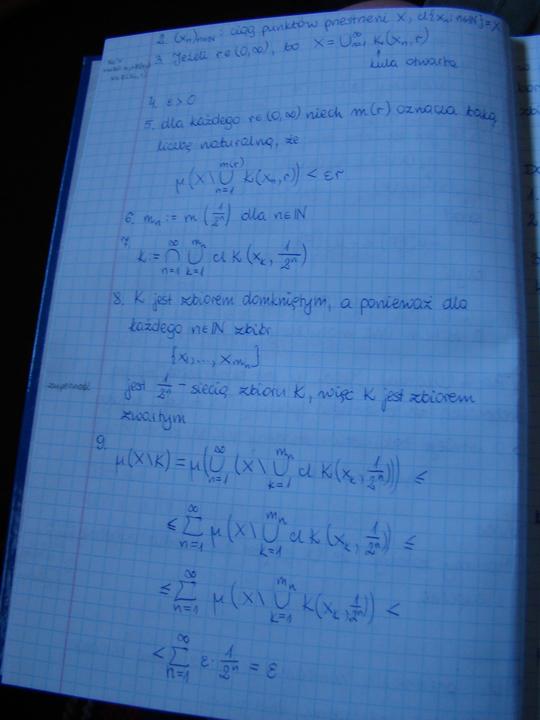 2. (xₙ)ₙ∈ℕ : ciąg punktów przestrzeni X, cl{xₙ : n∈ℕ} = X
3. Jeżeli r∈(0,∞), to X = ⋃ₙ₌₁^∞ K(xₙ, r)
kula otwarta
4. ε > 0
5. dla każdego r∈(0,∞) niech m(r) oznacza taką
liczbę naturalną, że
μ(X \ ⋃ₙ₌₁^{m(r)} K(xₙ, r)) < εr
6. mₙ := m(1/2ⁿ) dla n∈ℕ
7. K := ⋂ₙ₌₁^∞ ⋃ₖ₌₁^{mₙ} cl K(xₖ, 1/2ⁿ)
8. K jest zbiorem domkniętym, a ponieważ dla
każdego n∈ℕ zbiór
{x₁, ..., x_{mₙ}}
zupełność
jest 1/2ⁿ - siecią zbioru K, więc K jest zbiorem
zwartym
9.
μ(X\K) = μ(⋃ₙ₌₁^∞ (X \ ⋃ₖ₌₁^{mₙ} cl K(xₖ, 1/2ⁿ))) ≤
≤ ∑ₙ₌₁^∞ μ(X \ ⋃ₖ₌₁^{mₙ} cl K(xₖ, 1/2ⁿ)) ≤
≤ ∑ₙ₌₁^∞ μ(X \ ⋃ₖ₌₁^{mₙ} K(xₖ, 1/2ⁿ)) <
< ∑ₙ₌₁^∞ ε · 1/2ⁿ = ε